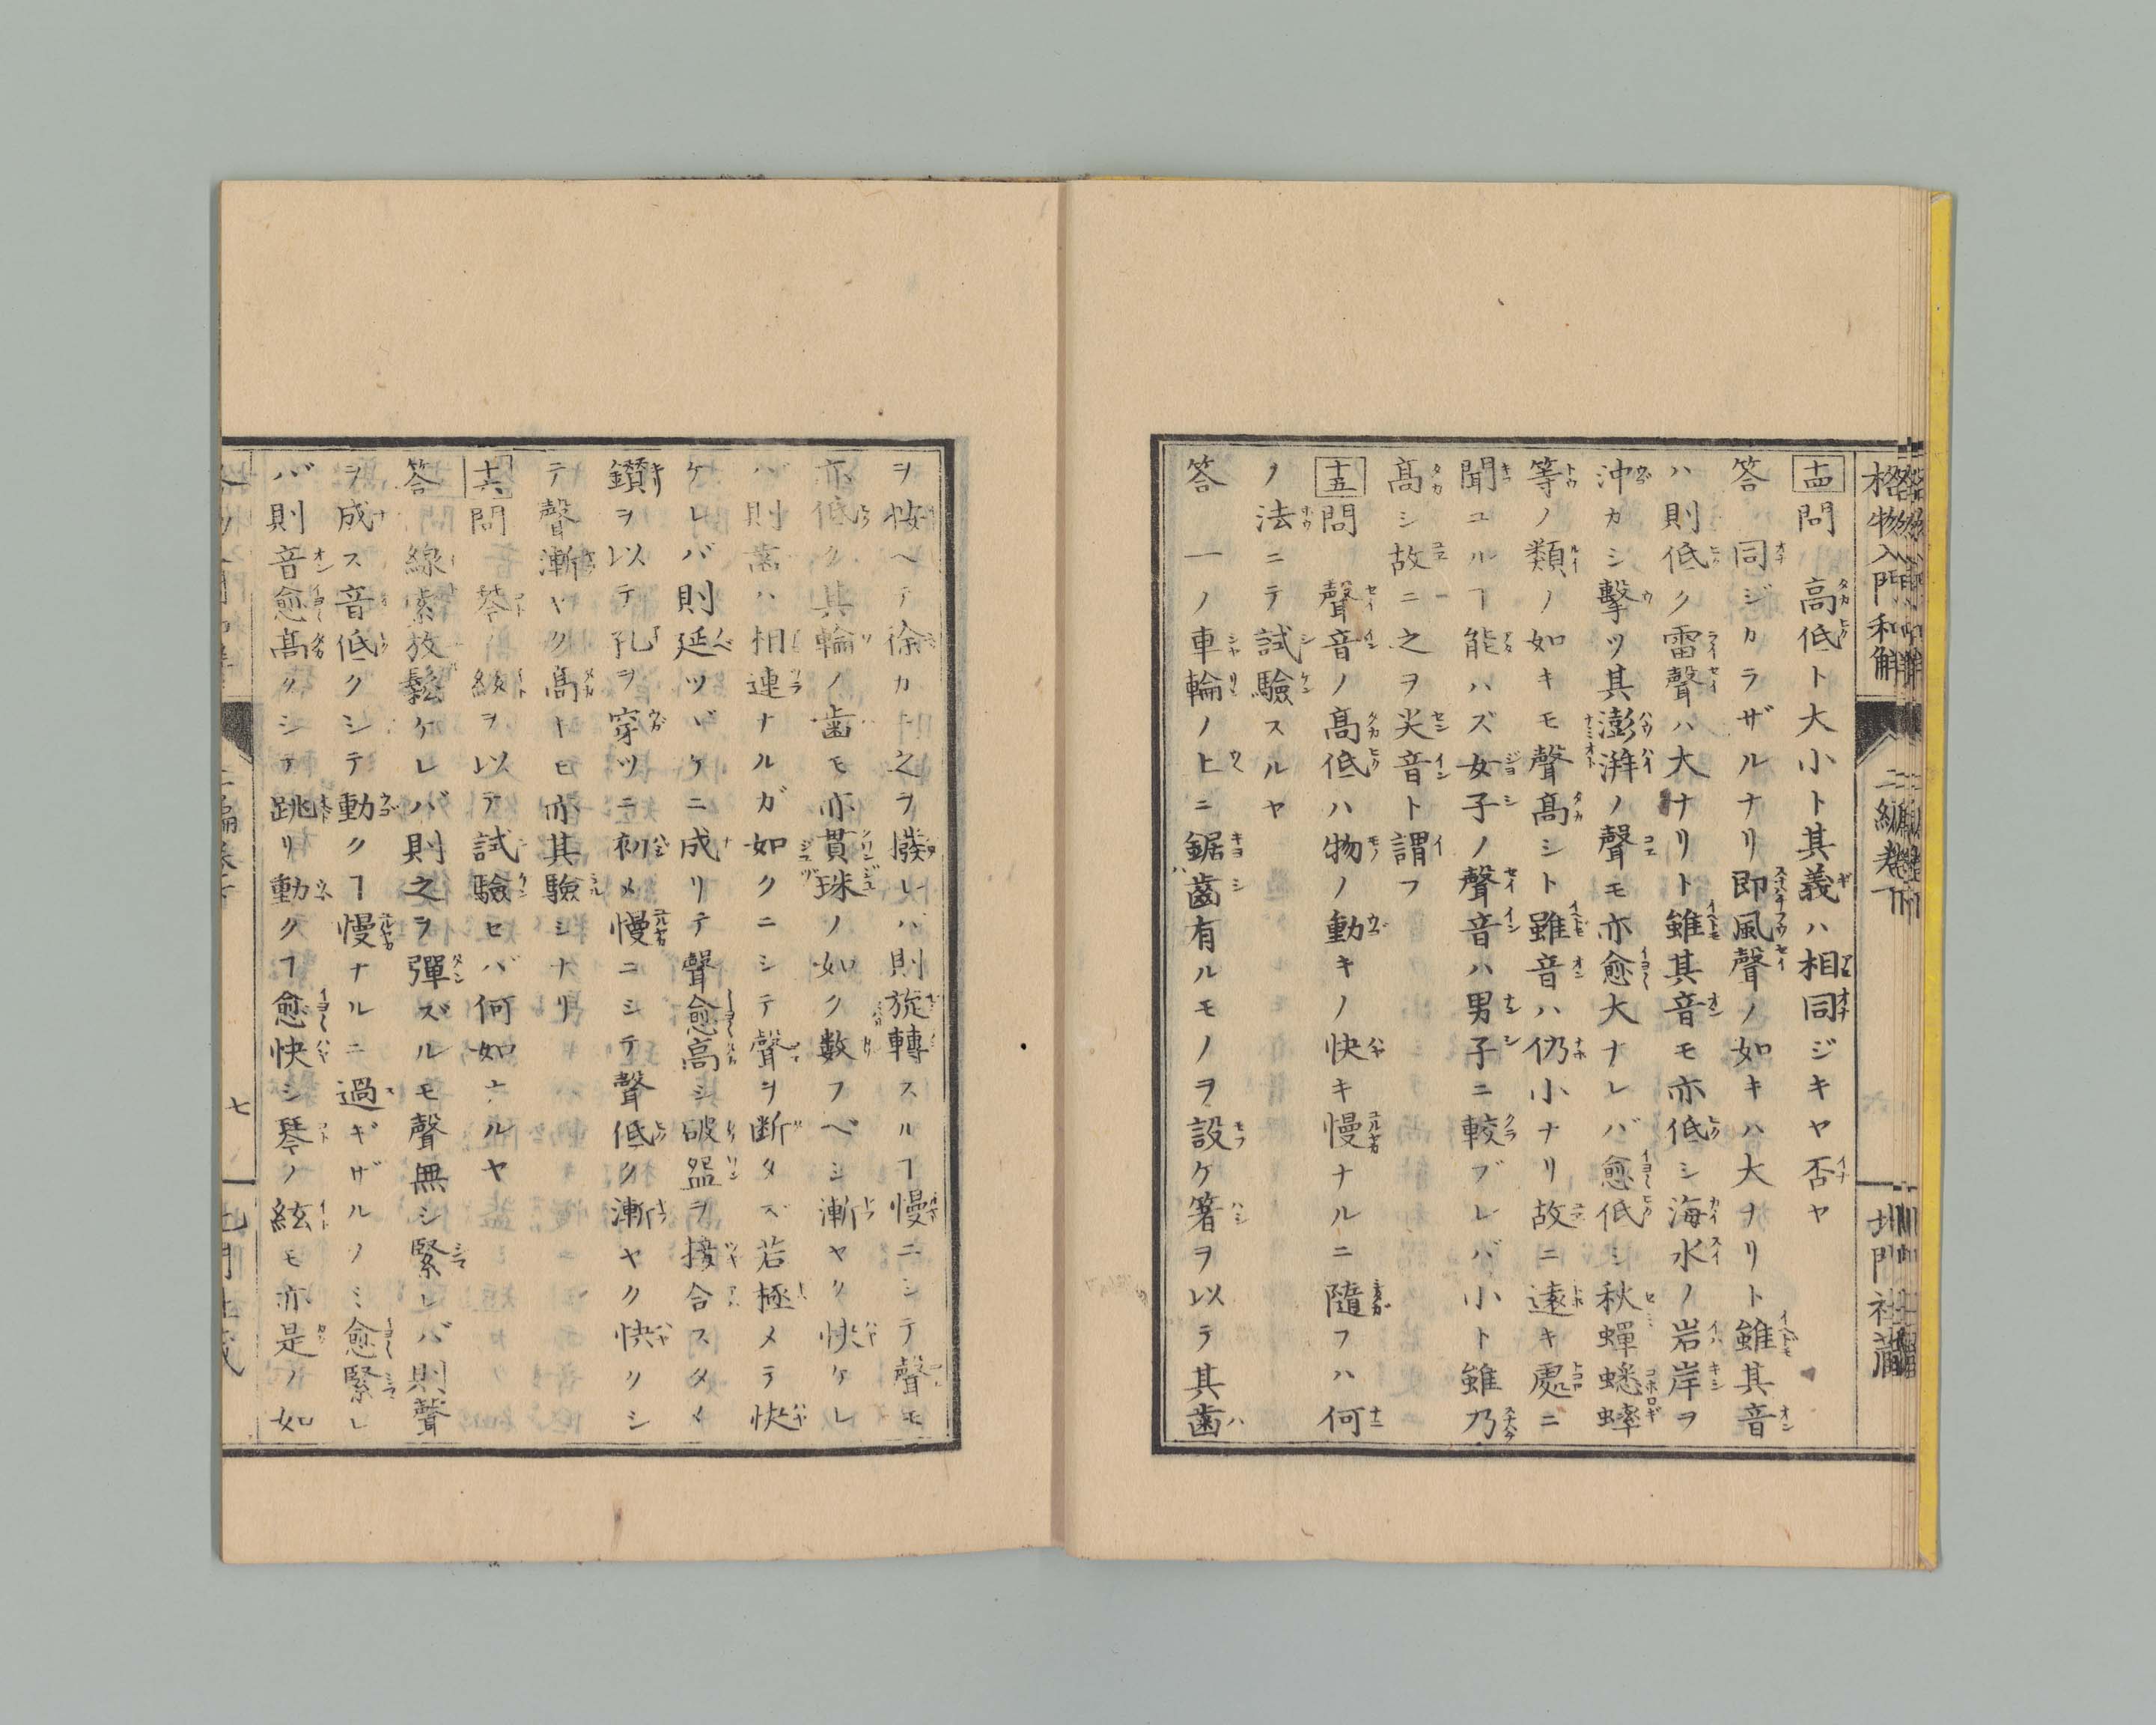 格物入門和解
二編巻下
北門社藏
十四問 高低ト大小ト其義ハ相同ジキヤ否ヤ
答 同ジカラザルナリ即風聲ノ如キハ大ナリト雖其音
ハ則低ク雷聲ハ大ナリト雖其音モ亦低シ海水ノ岩岸ヲ
沖カシ擊ツ其澎湃ノ聲モ亦愈大ナレバ愈低シ秋蟬蟋蟀
等ノ類ノ如キモ聲髙シト雖音ハ仍小ナリ故ニ遠キ處ニ
聞ユルヿ能ハズ女子ノ聲音ハ男子ニ較ブレバ小ト雖乃
髙シ故ニ之ヲ尖音ト謂フ
十五問 聲音ノ髙低ハ物ノ動キノ快キ慢ナルニ隨フハ何
ノ法ニテ試驗スルヤ
答 一ノ車輪ノ上ニ鋸齒有ルモノヲ設ケ箸ヲ以テ其歯
ヲ按ヘテ徐カニ之ヲ撥レバ則旋轉スルヿ慢ニシテ聲モ
亦低ク其輪ノ歯モ亦貫珠ノ如ク数フベシ漸ヤク快ケレ
バ則歯ハ相連ナルガ如クニシテ聲ヲ断タズ若極メテ快
ケレバ則延ツヾケニ成リテ聲愈高シ破盌ヲ接合スタメ
鑚ヲ以テ孔ヲ穿ツニ初メ慢ニシテ聲低ク漸ヤク快クシ
テ聲漸ヤク髙キモ亦其驗シナリ
十六問 琴ノ絃ヲ以テ試驗セバ何如ナルヤ
答 線索放鬆ケレバ則之ヲ彈ズルモ聲無シ緊レバ則聲
ヲ成ス音低クシテ動クヿ慢ナルニ過ギザルノミ愈緊レ
バ則音愈髙クシテ跳リ動クヿ愈快シ琴ノ絃モ亦是ノ如
七